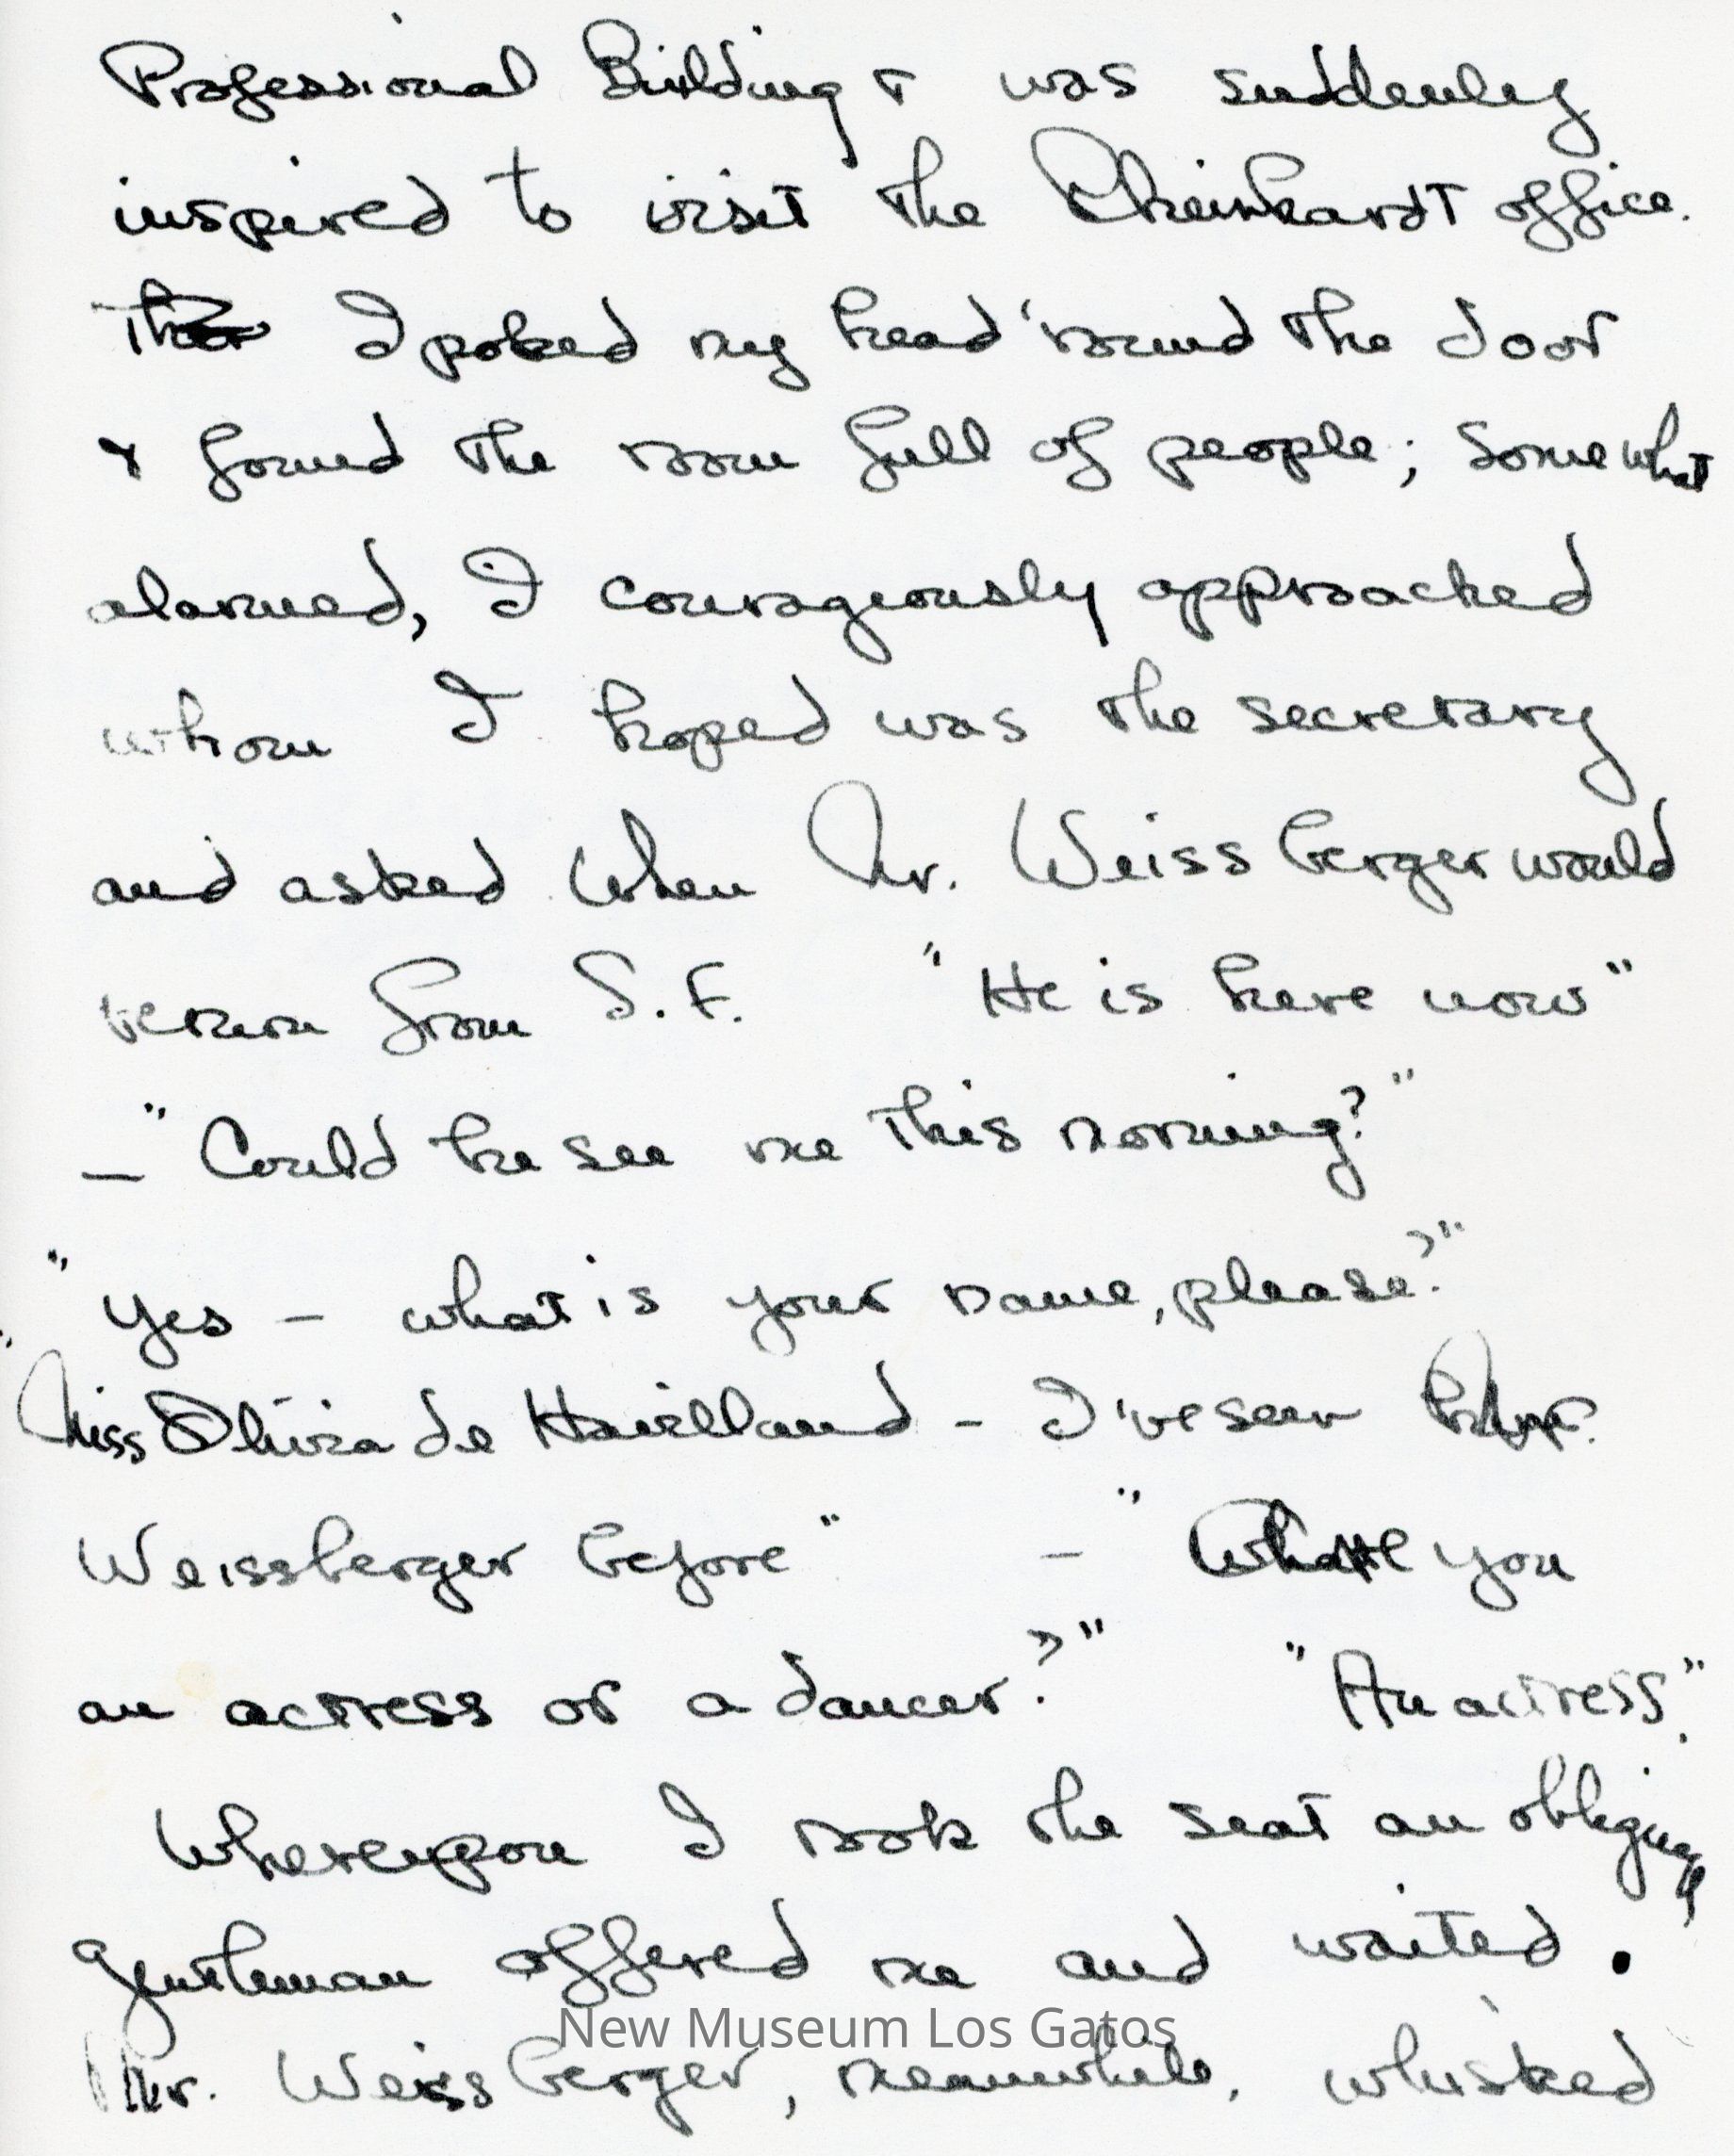 Professional Building & was suddenly
inspired to visit the Rheinhardt office.
I poked my head 'round the door
& found the room full of people; somewhat
alarmed, I courageously approached
whom I hoped was the secretary
and asked when Mr. Weissberger would
return from S.F. "He is here now"
— "Could he see me this morning?"
"Yes — what is your name, please?"
"Miss Olivia de Havilland — I've seen Mr.
Weissberger before" — " you
an actress or a dancer?" "An actress".
Whereupon I took the seat an obliging
gentleman offered me and waited.
Mr. Weissberger, meanwhile, whisked
New Museum Los Gatos